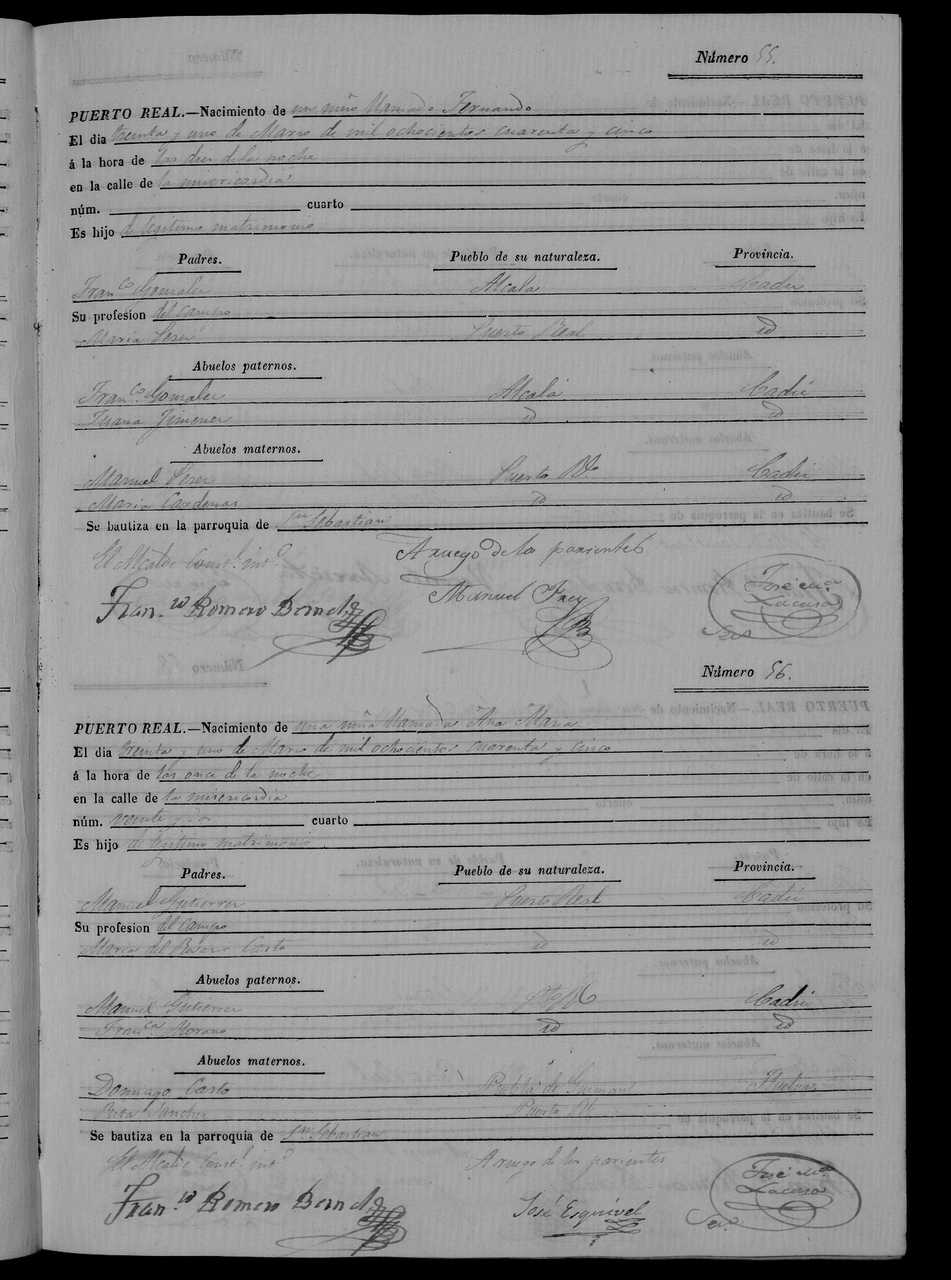 Número 55.
PUERTO REAL.—Nacimiento de un niño llamado Fernando
El dia treinta y uno de Marzo de mil ochocientos cuarenta y cinco
á la hora de las diez de la noche
en la calle de la misericordia
núm. cuarto
Es hijo de legitimo matrimonio
Padres. Pueblo de su naturaleza. Provincia.
Franco Gonzalez Alcala Cadiz
Su profesion del campo
Maria Puerto Real id
Abuelos paternos.
Franco Gonzalez Alcalá Cadiz
Juana Jimenez id id
Abuelos maternos.
Manuel Puerto Rl Cadiz
Maria Cardenas id id
Se bautiza en la parroquia de Sn Sebastian
El Alcalde Constl intº
A ruego de los parientes
Franco Romero Bernal
Manuel
José Mª
Lacusa
Sº
Número 56.
PUERTO REAL.—Nacimiento de una niña llamada Ana Maria
El dia treinta y uno de Marzo de mil ochocientos cuarenta y cinco
á la hora de las once de la noche
en la calle de la misericordia
núm. veinte y dos cuarto
Es hijo de legitimo matrimonio
Padres. Pueblo de su naturaleza. Provincia.
Manuel Gutierrez Puerto Real Cadiz
Su profesion del campo
Maria del Rosario Casto id id
Abuelos paternos.
Manuel Gutierrez Pto Rl Cadiz
Franca Moreno id id
Abuelos maternos.
Domingo Casto Puebla de Guzman Huelva
Rita Sanchez Puerto Rl
Se bautiza en la parroquia de Sn Sebastian
El Alcalde Constl intº
A ruego de los parientes
Franco Romero Bernal
José Esquivel
José Mª
Lacusa